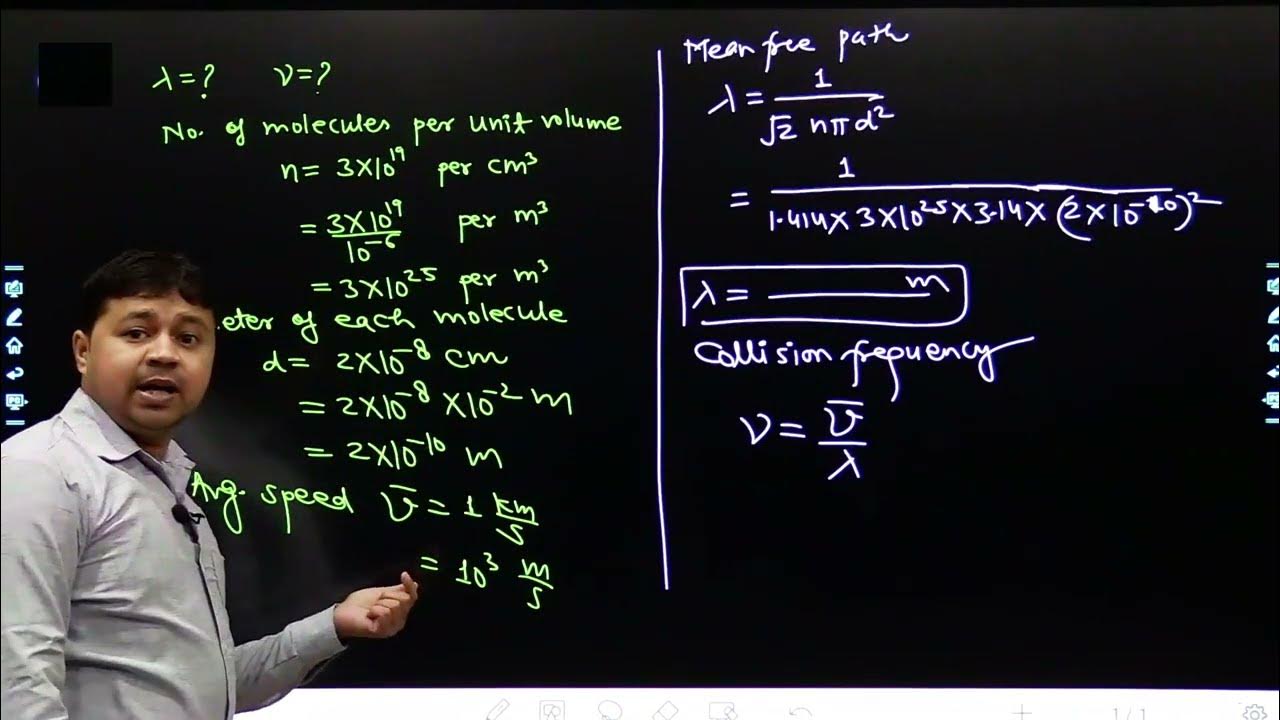 λ=? ν=?
No. of molecules per unit volume
n= 3×10¹⁹ per cm³
= 3×10¹⁹/10⁻⁶ per m³
= 3×10²⁵ per m³
eter of each molecule
d= 2×10⁻⁸ cm
= 2×10⁻⁸ ×10⁻² m
= 2×10⁻¹⁰ m
Avg. speed v̄ = 1 km/s
= 10³ m/s
Mean free path
λ = 1/(√2 nπd²)
= 1/(1.414×3×10²⁵×3.14×(2×10⁻¹⁰)²)
λ = ——— m
Collision frequency
ν = v̄/λ
1/1